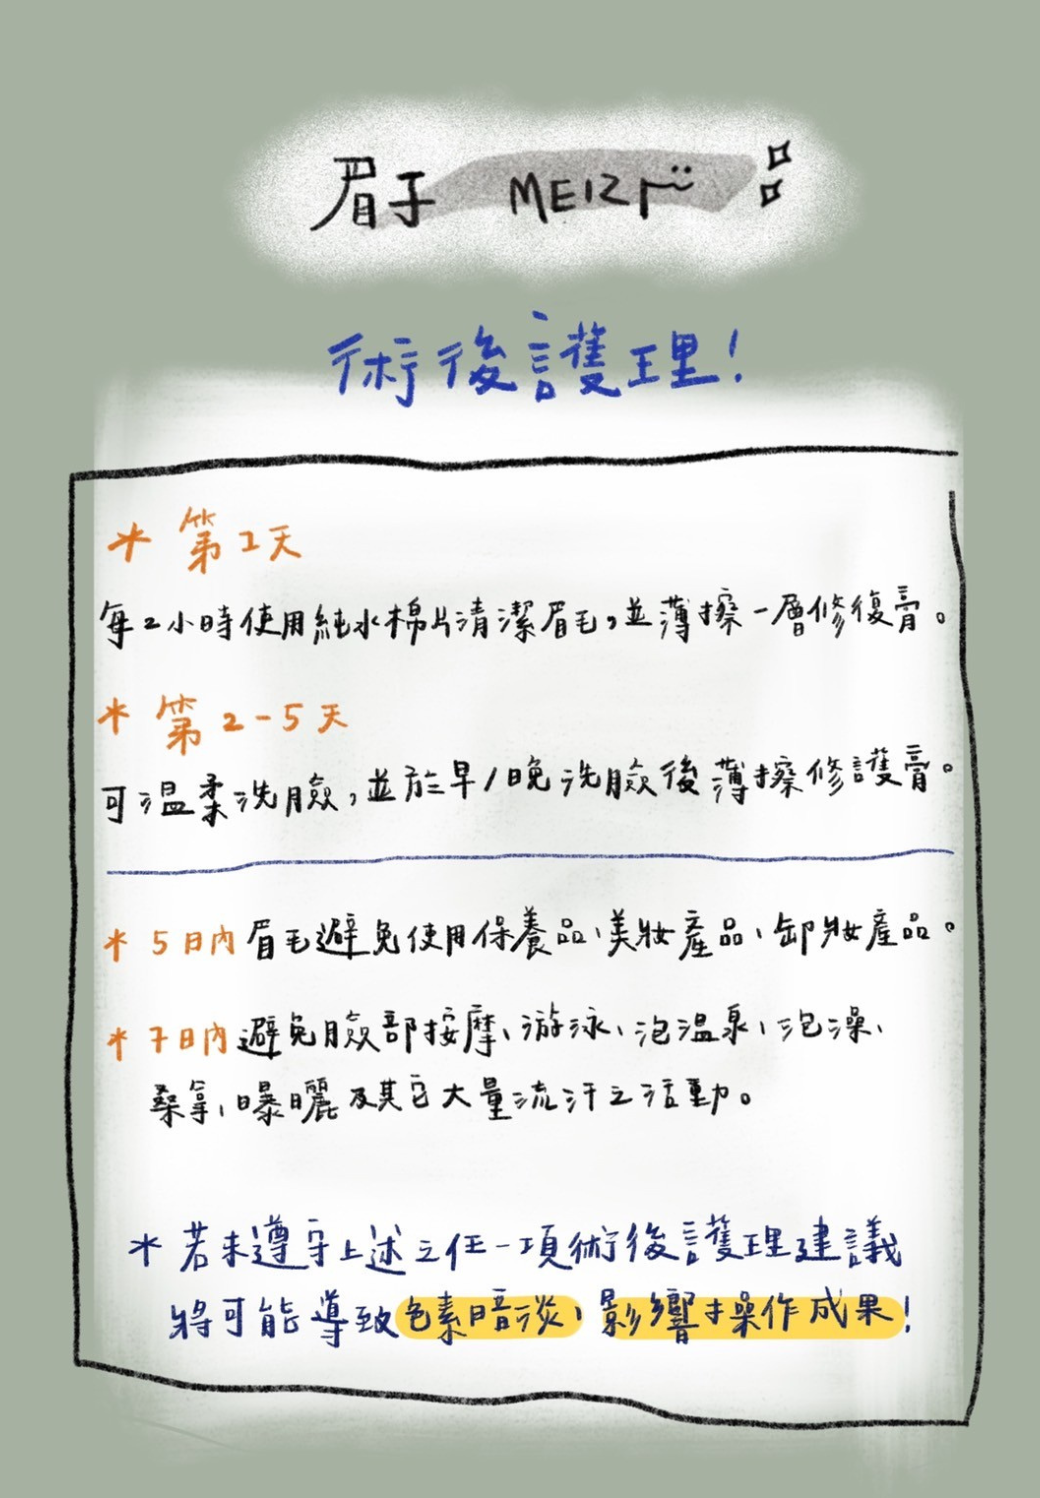 眉子 MEIZI
術後護理!
* 第1天
每2小時使用純水棉片清潔眉毛,並薄擦一層修復膏。
* 第2-5天
可溫柔洗臉,並於早/晚洗臉後薄擦修護膏。
* 5日內眉毛避免使用保養品、美妝產品、卸妝產品。
* 7日內避免臉部按摩、游泳、泡溫泉、泡澡、
桑拿、曝曬及其它大量流汗之活動。
* 若未遵守上述之任一項術後護理建議
將可能導致色素暗淡、影響操作成果!